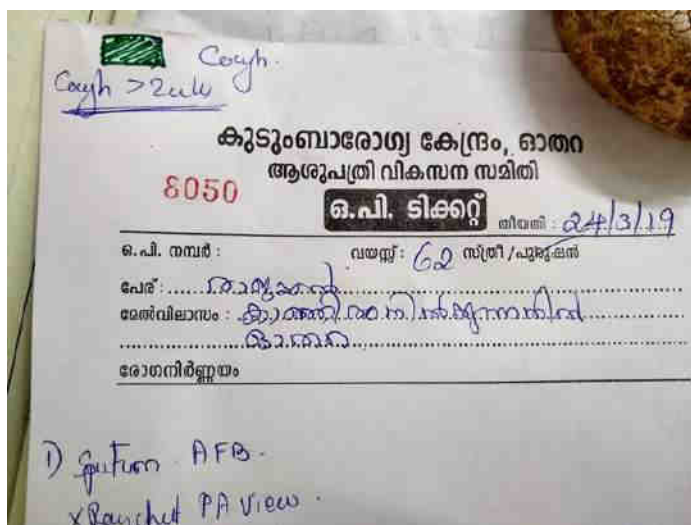 Cough.
Cough > 2wks
കുടുംബാരോഗ്യ കേന്ദ്രം, ഓതറ
ആശുപത്രി വികസന സമിതി
8050
ഒ.പി. ടിക്കറ്റ്
തീയതി : 24/3/19
ഒ.പി. നമ്പർ : വയസ്സ് : 62 സ്ത്രീ/പുരുഷൻ
പേര് :
മേൽവിലാസം :
ഓതറ
രോഗനിർണ്ണയം
1) Sputum AFB.
X Ray chest PA view.